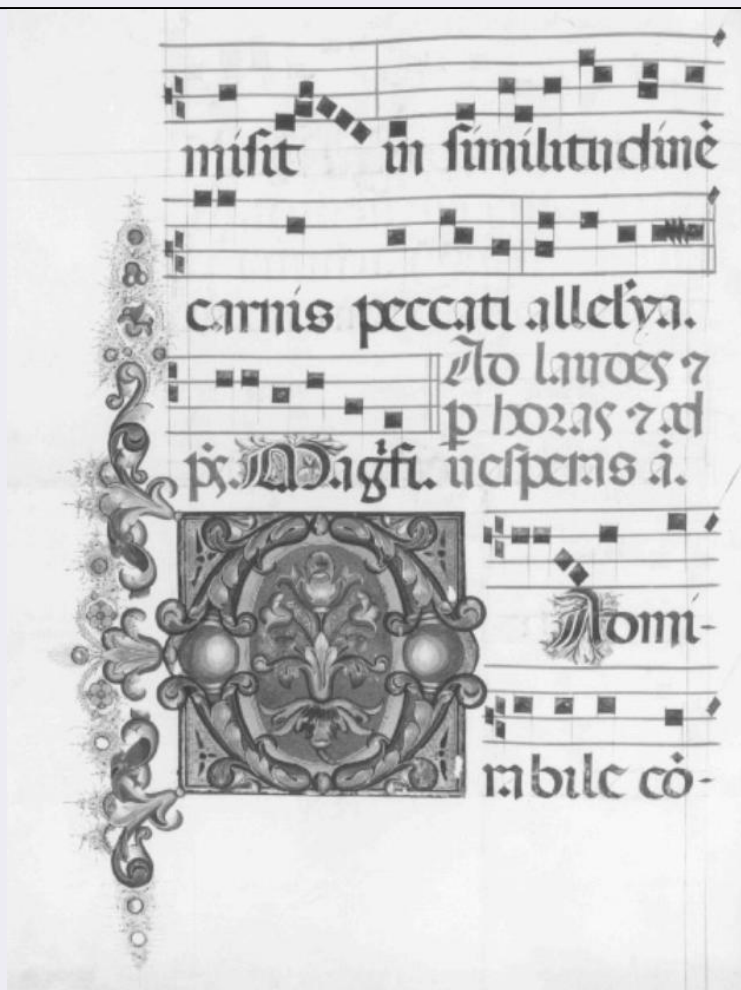 misit in similitudinē
carnis peccati alleluya.
Ad laudes ⁊
p̱ horas ⁊ ad
ps̄. Magn̄fi. uesperas a̅.
O Admi-
rabile cō-